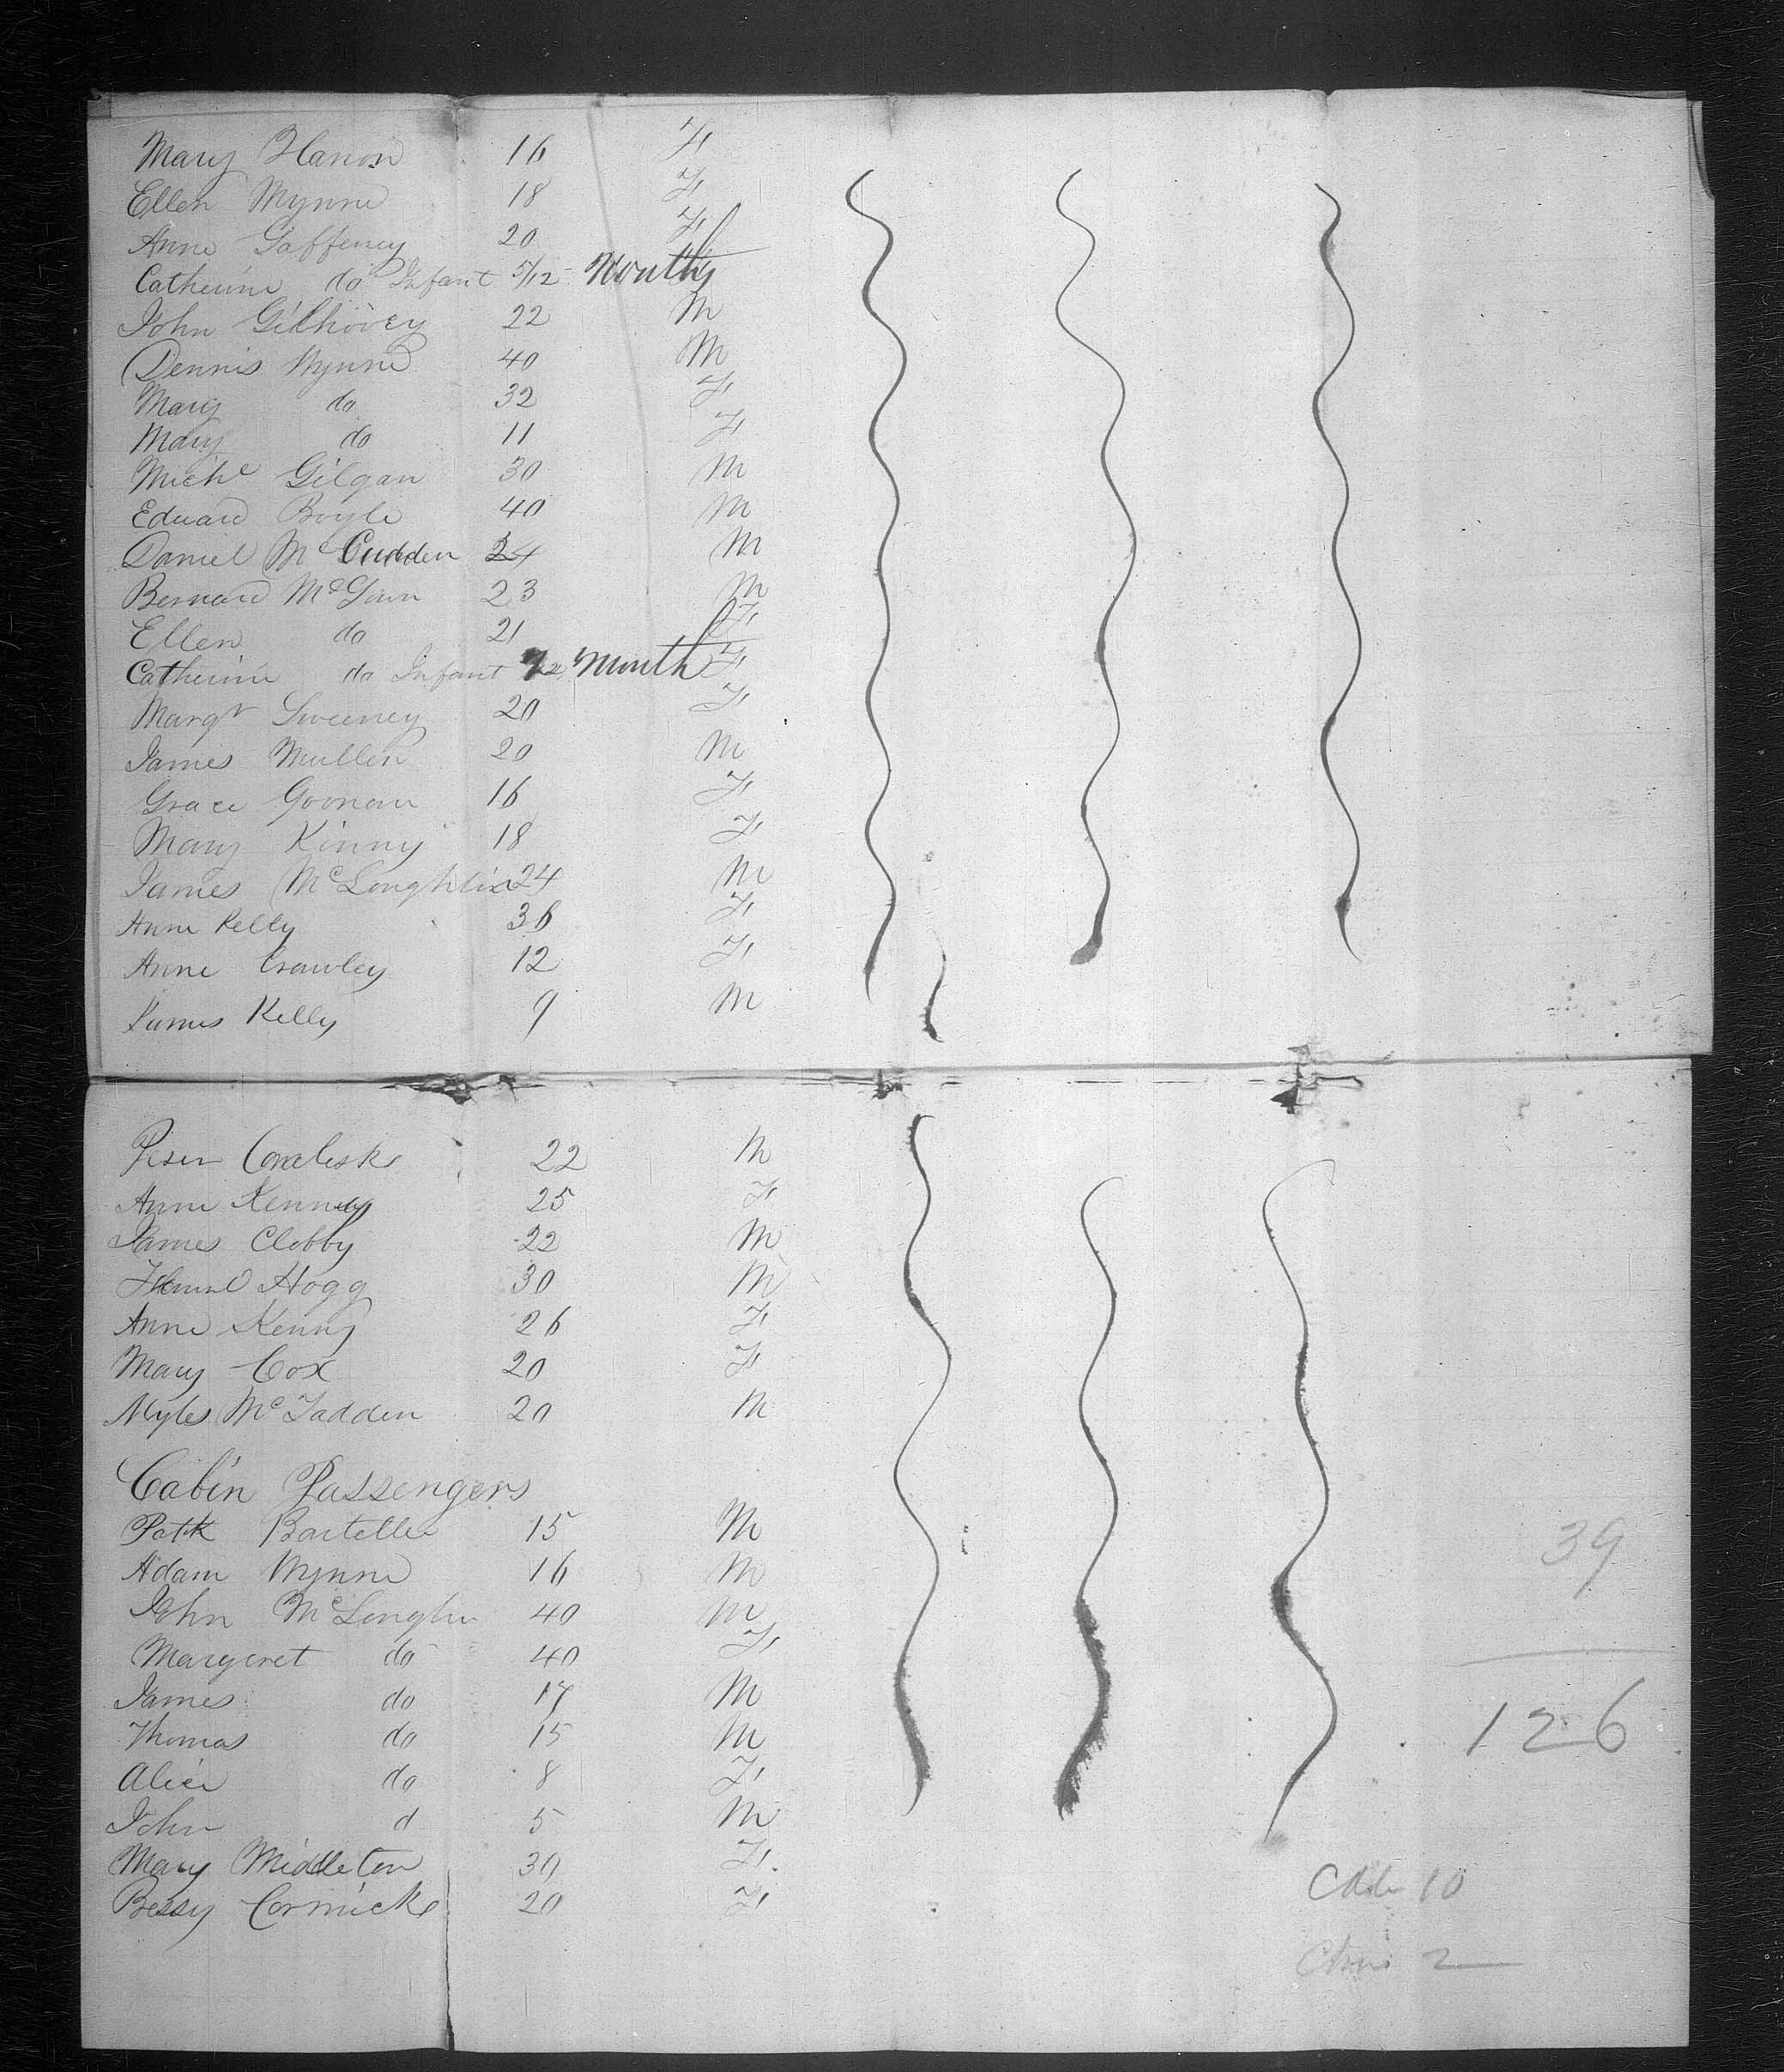 Mary Hanon 16 F
Ellen Wynne 18 F
Anne Gaffeney 20 F
Catherine do Infant 5/12 Months
John Gilhovey 22 M
Dennis Wynne 40 M
Mary do 32 F
Mary do 11 F
Michl Gilgan 30 M
Edward Boyle 40 M
Daniel McCudden 24 M
Bernard McGown 23 M
Ellen do 21 F
Catherine do Infant Month F
Margt Sweeney 20 F
James Mullen 20 M
Grace Goonan 16 F
Mary Kinny 18 F
James McLoughlin 24 M
Anne Kelly 36 F
Anne Crawley 12 F
James Kelly 9 M
Peter 22 M
Anne Kennedy 25 F
James Clobby 22 M
Hogg 30 M
Anne Kenny 26 F
Mary Cox 20 F
Myles McFadden 20 M
Cabin Passengers
Patk 15 M
Adam Wynne 16 M
39
John McLoughn 40 M
Margeret do 40 F
James do 17 M
Thomas do 15 M
126
Alice do 8 F
John d 5 M
Mary Middleton 30 F
10
Bessy Cormick 20 F
2